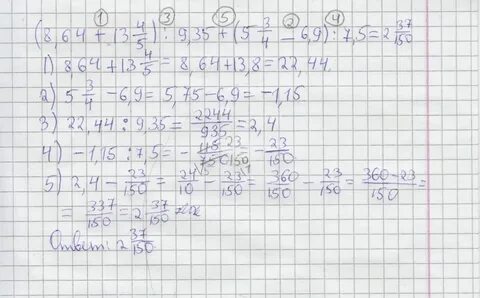 ① ③ ⑤ ② ④
(8,64 + 13 4/5) : 9,35 + (5 3/4 - 6,9) : 7,5 = 2 37/150
1) 8,64 + 13 4/5 = 8,64 + 13,8 = 22,44.
2) 5 3/4 - 6,9 = 5,75 - 6,9 = -1,15
3) 22,44 : 9,35 = 2244/935 = 2,4
4) -1,15 : 7,5 = - 23/150 - 23/150
5) 2,4 - 23/150 = 24/10 - 23/150 = 360/150 - 23/150 = 360-23/150 =
= 337/150 = 2 37/150
Ответ: 2 37/150